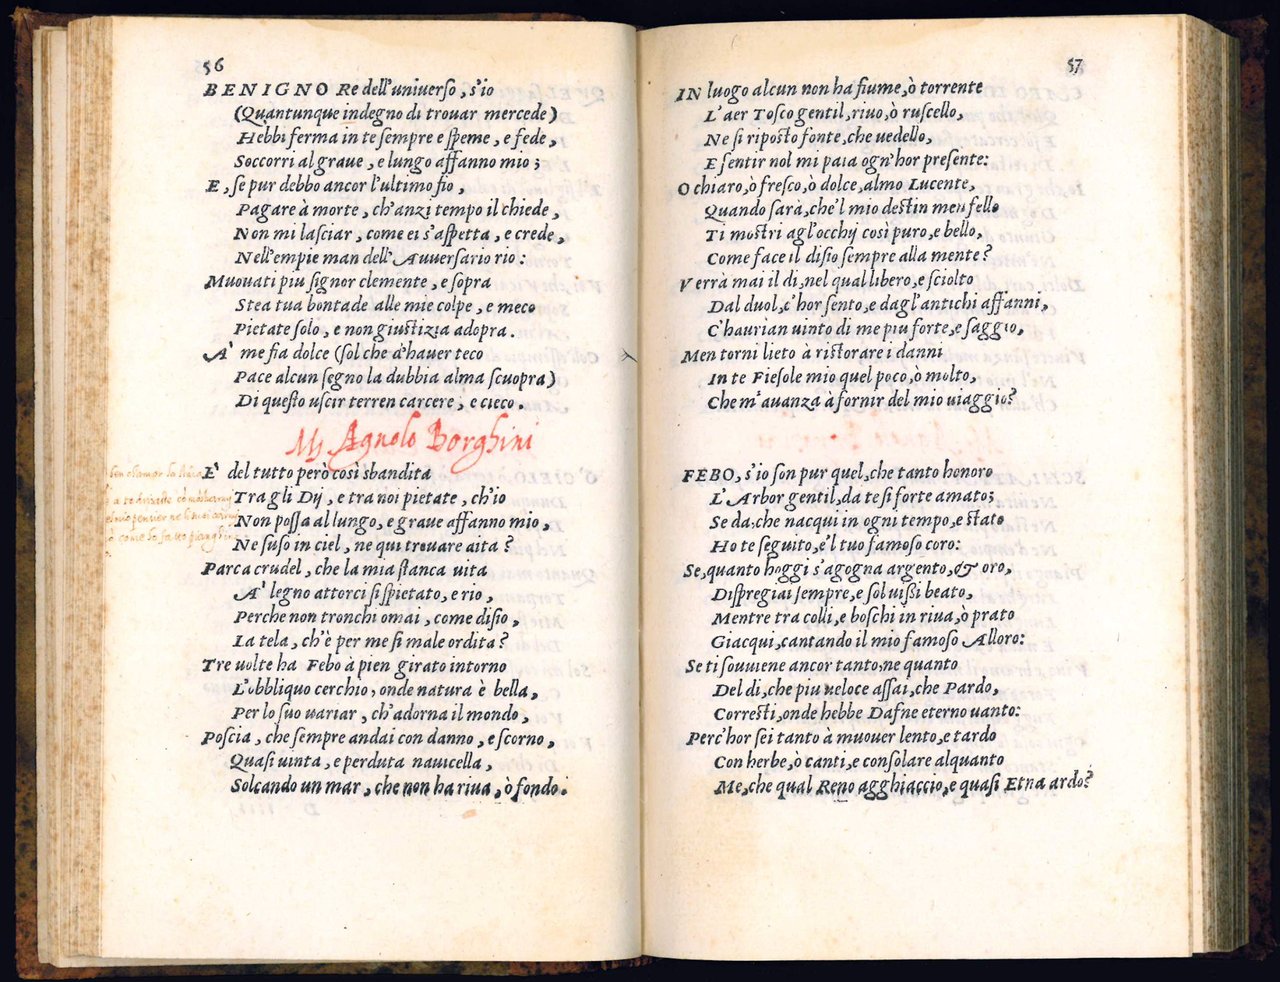 56
BENIGNO Re dell'universo, s'io
(Quantunque indegno di trovar mercede)
Hebbi ferma in te sempre e speme, e fede,
Soccorri al graue, e lungo affanno mio;
E, se pur debbo ancor l'ultimo fio,
Pagare à morte, ch'anzi tempo il chiede,
Non mi lasciar, come ei s'aspetta, e crede,
Nell'empie man dell'Auuersario rio:
Muouati piu signor clemente, e sopra
Stea tua bontade alle mie colpe, e meco
Pietate solo, e non giustizia adopra.
A' me fia dolce (sol che d'hauer teco
Pace alcun segno la dubbia alma scuopra)
Di questo uscir terren carcere, e cieco.
Mʃ Agnolo Borghini
E' del tutto però così sbandita
Tra gli Dij, e tra noi pietate, ch'io
Non possa al lungo, e graue affanno mio,
Ne suso in ciel, ne qui trouare aita?
Parca crudel, che la mia stanca uita
A' legno attorci sì spietato, e rio,
Perche non tronchi omai, come disio,
La tela, ch'è per me si male ordita?
Tre uolte ha Febo à pien girato intorno
L'obbliquo cerchio, onde natura è bella,
Per lo suo uariar, ch'adorna il mondo,
Poscia, che sempre andai con danno, e scorno,
Quasi uinta, e perduta nauicella,
Solcando un mar, che non ha riua, ò fondo.
57
IN luogo alcun non ha fiume, ò torrente
L'aer Tosco gentil, riuo, ò ruscello,
Ne si riposto fonte, che uedello,
E sentir nol mi paia ogn'hor presente:
O chiaro, ò fresco, ò dolce, almo Lucente,
Quando sarà, che'l mio destin men fello
Ti mostri agl'occhij così puro, e bello,
Come face il disio sempre alla mente?
Verrà mai il di, nel qual libero, e sciolto
Dal duol, c'hor sento, e dagl'antichi affanni,
C'haurian uinto di me piu forte, e saggio,
Men torni lieto à ristorare i danni
In te Fiesole mio quel poco, ò molto,
Che m'auanza à fornir del mio uiaggio?
FEBO, s'io son pur quel, che tanto honoro
L'Arbor gentil, da te si forte amato;
Se da, che nacqui in ogni tempo, e stato
Ho te seguito, e'l tuo famoso coro:
Se, quanto hoggi s'agogna argento, & oro,
Dispregiai sempre, e sol uissi beato,
Mentre tra colli, e boschi in riua, ò prato
Giacqui, cantando il mio famoso Alloro:
Se ti souuiene ancor tanto, ne quanto
Del di, che piu ueloce assai, che Pardo,
Corresti, onde hebbe Dafne eterno uanto:
Perc'hor sei tanto à muouer lento, e tardo
Con herbe, ò canti, e consolare alquanto
Me, che qual Reno agghiaccio, e quasi Etna ardo?